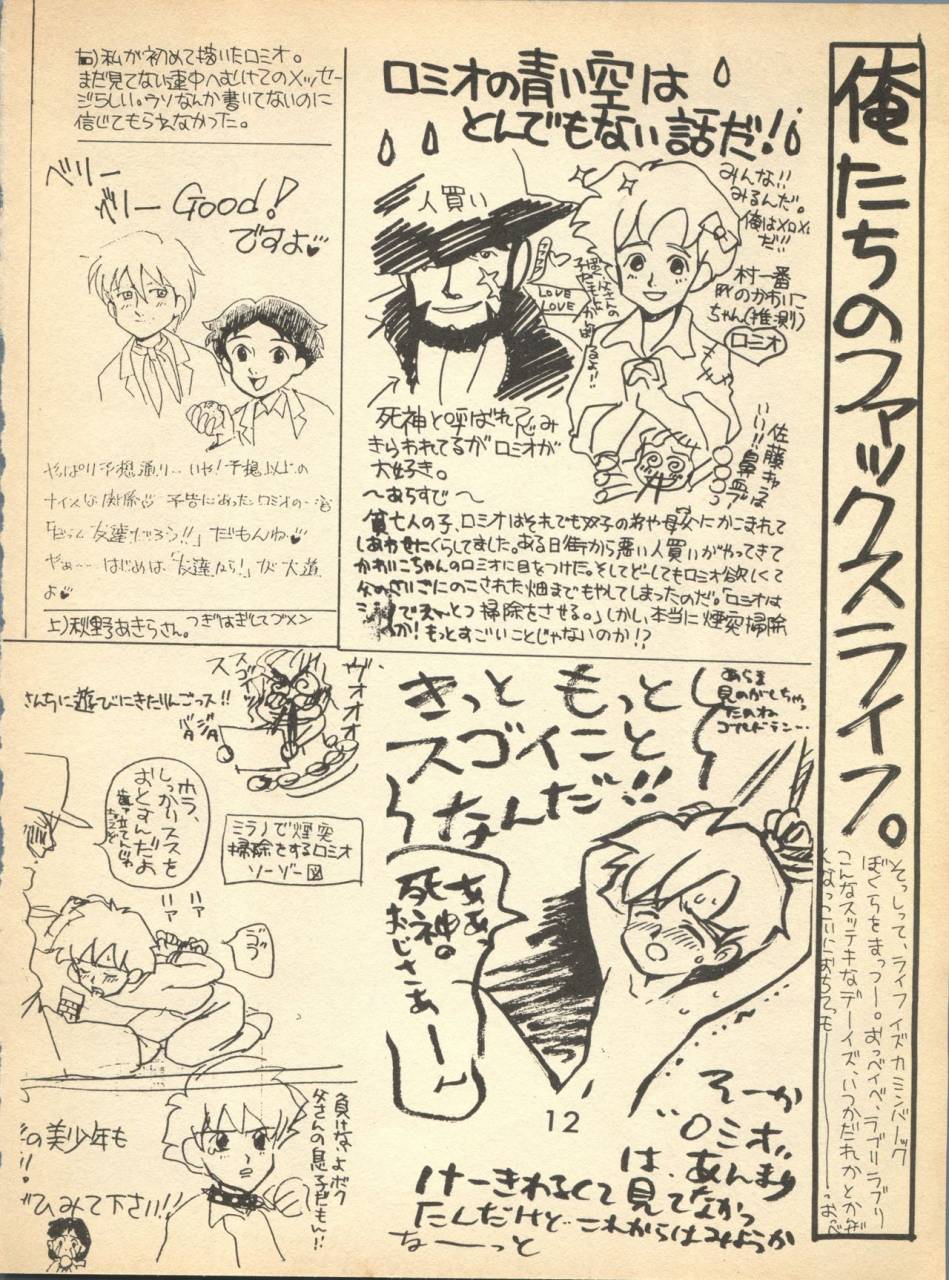 俺たちのファックスライフ。
そっしって、ライフ イズ カミンバーック
ぼくらをまっつー。おっベイベ、ラブリラブリ
こんなスッテキなデーイズ、いつかだれかとかぜ
ロミオの青い空は
とんでもない話だ!!
みんな!!
みるんだ。
俺はメロメロ
だ!!
村一番
ちゃん(推測)
ロミオ
人買い
LOVE
LOVE
佐藤キャラは
いい!!鼻血ブー
死神と呼ばれ忌み
きらわれてるがロミオが
大好き。
〜あらすじ〜
しあわせにくらしてました。ある日街から悪い人買いがやってきて
かわいこちゃんのロミオに目をつけた。そしてどーしてもロミオ欲しくて
父のさいごにのこされた畑までもやしてしまったのだ。「ロミオは
ミラノでえんとつ掃除をさせる。」しかし、本当に煙突掃除
のか!もっとすごいことじゃないのか!?
右)私が初めて描いたロミオ。
まだ見てない連中へむけてのメッセー
ジらしい。ウソなんか書いてないのに
信じてもらえなかった。
ベリー
ベリー Good!
ですよ♥
やっぱり予想通り… いや!予想以上の
ナイスな関係♡ 予告にあったロミオの一言
だもんね♥
やぁ… はじめは、「友達から!」が大道
よ♥
上)秋野あきらさん。つぎはぎしてゴメン
あらま
見のがしちゃっ
たのね
ゴールドラン…
きっと もっと
スゴイこと
なんだ!!
ああっ
死神の
おじさぁーー
12
そーか
"ロミオ"
は、あんまり
けーきわるくて見てなかっ
たんだけど これからはみようか
なーーっと
さんちに遊びにきたりんごっス!!
スゴ
ヴォオオ
バタ
ジタ
ミラノで煙突
掃除をするロミオ
ソーゾー図
ホラ、
しっかりススを
おとすんだよ
歯ァ立てんじゃ
ねえぞ
ハァ
ハァ
の美少年も
!!
ひみて下さい!!
負けないよボク
父さんの息子だもん!!